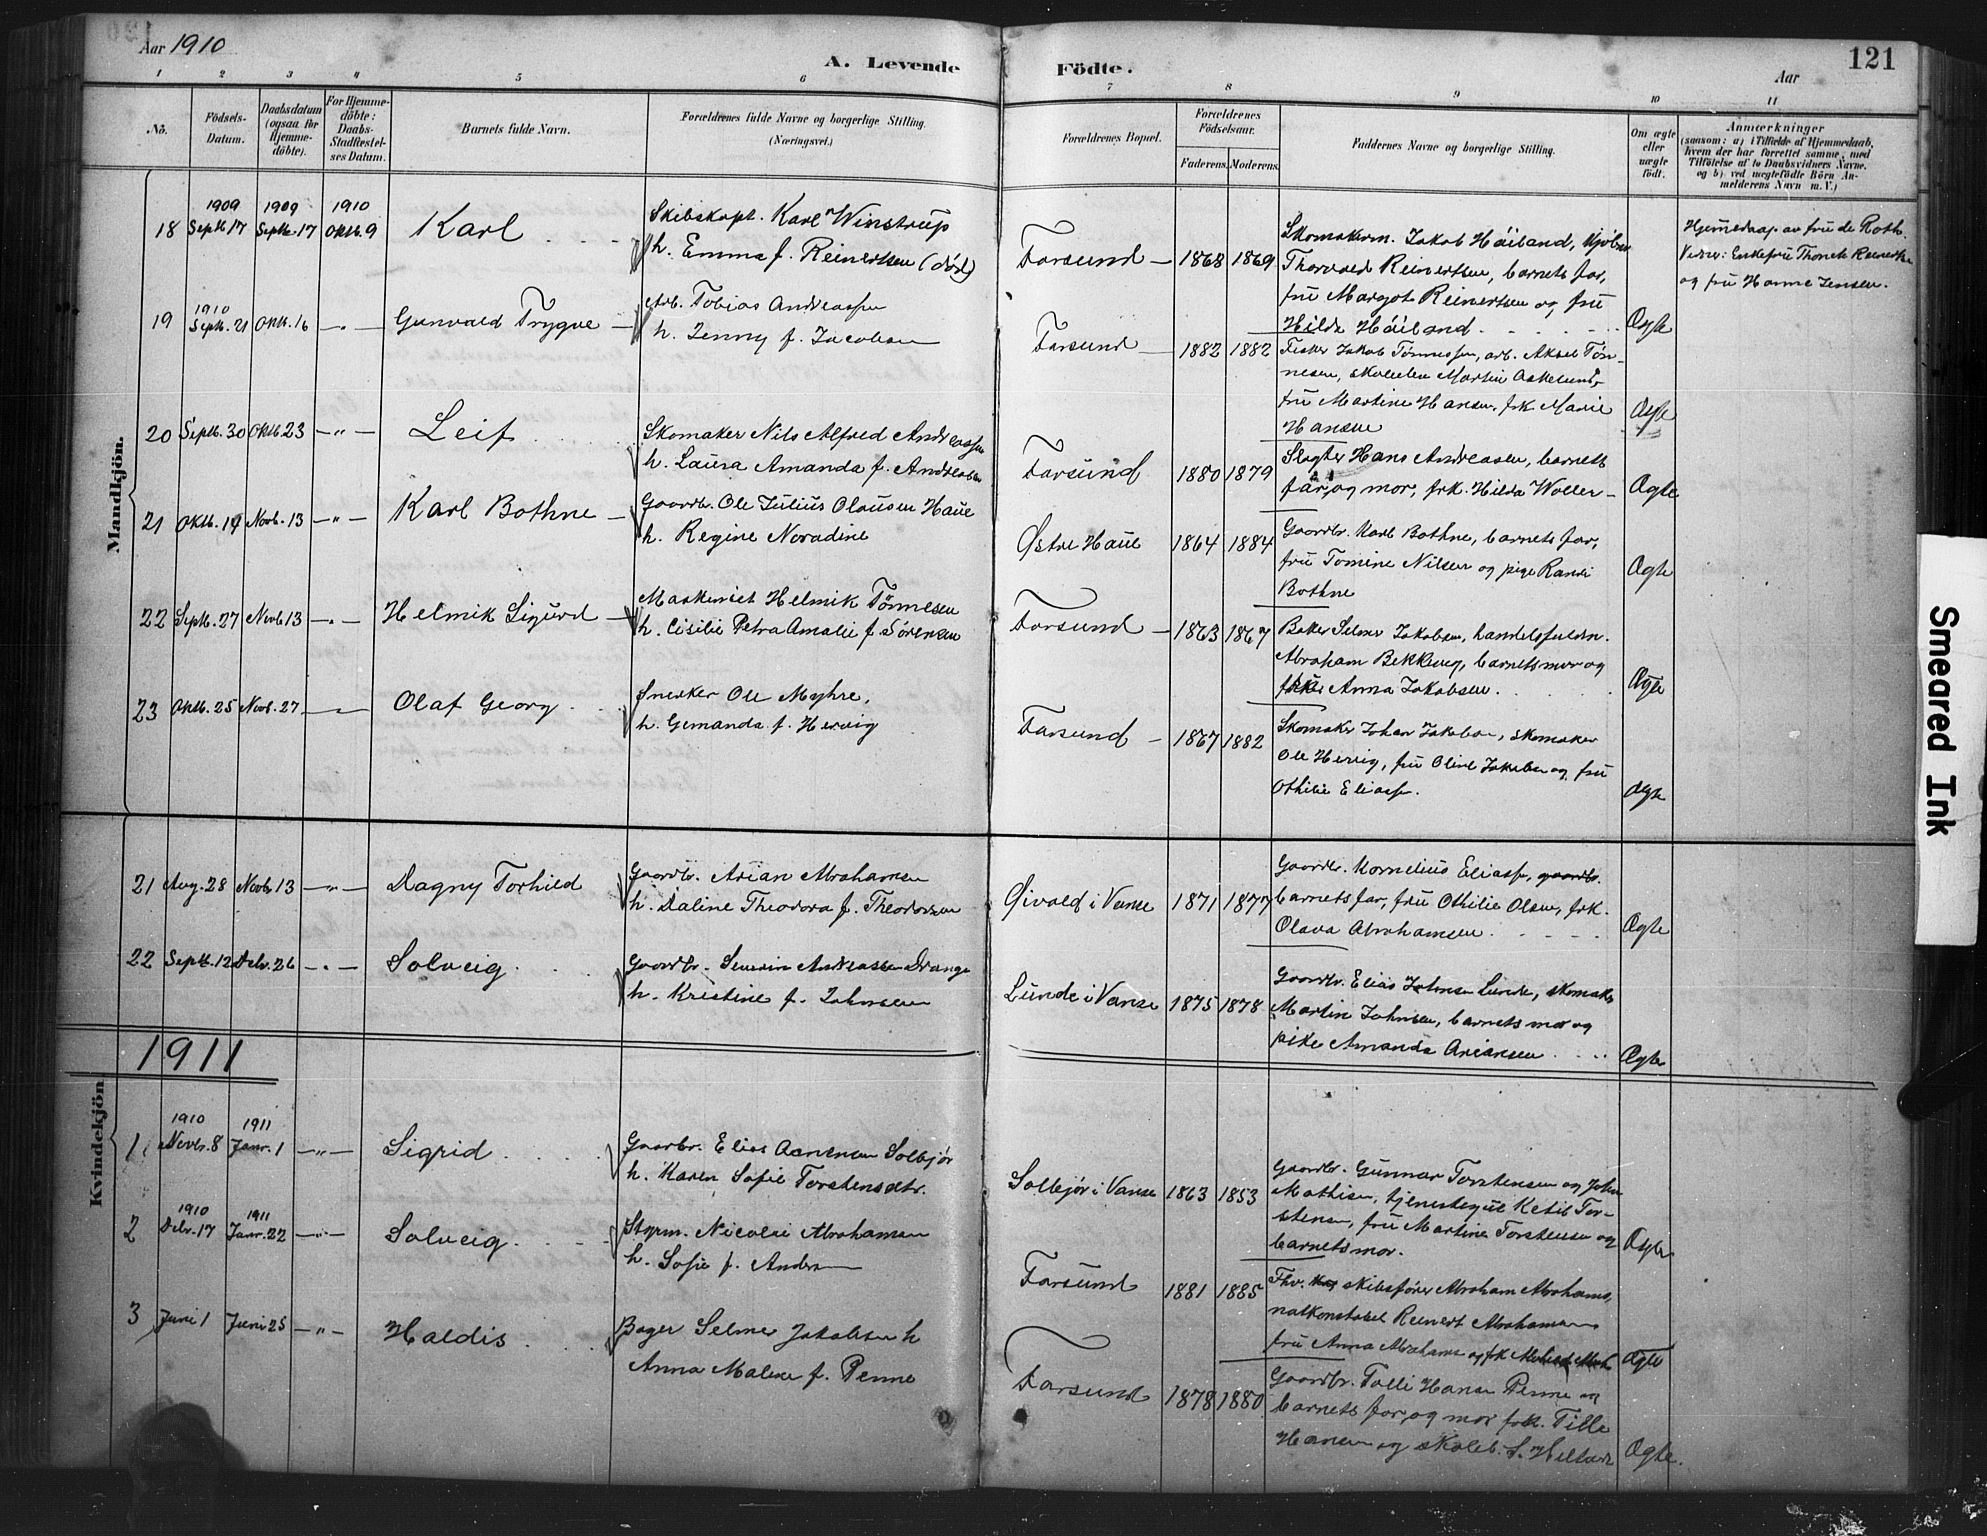 Aar 1910
A. Levende Födte.
Aar
121
1 2 3 4 5 6 7 8 9 10 11
No.
Födsels-
Datum.
Daabsdatum
(ogsaa for
Hjemme-
döbte).
For Hjemme-
döbte:
Daabs-
Stadfæstel-
ses Datum.
Barnets fulde Navn.
Forældrenes fulde Navne og borgerlige Stilling.
(Næringsvei.)
Forældrenes Bopæl.
Forældrenes
Födselsaar.
Faderens. Moderens.
Faddernes Navne og borgerlige Stilling.
Om ægte
eller
uægte
født.
Anmærkninger
(saasom: a) i Tilfælde af Hjemmedaab,
hvem der har forrettet samme, med
Tilföielse af to Daabsvidners Navne,
og b) ved uægtefödte Börn An-
melderens Navn m. V.)
Mandkjön.
1909 1909 1910
18 Septb. 17 Septb. 17 Oktb. 9 Karl
Skibskapt. Karl Winstrup
h. Emma f. Reinertsen (död)
Farsund 1868 1869
Skomakerm. Jakob Höiland, kjöbm
Thorvald Reinertsen, barnets far,
fru Margot Reinertsen og fru
Hilda Höiland
Ægte
Hjemedaap av fru de Roth.
Vidner: Enkefru Thonete Reinertse
og fru Hanne Jensen.
1910
19 Septb. 21 Oktb. 16 Gunvald Trygve
Arb. Tobias Andreassen
h. Jenny f. Jacobsen
Farsund 1882 1882
Fisker Jakob Tönnessen, arb. Aksel Tön-
nesen, skoleelev Martin Askelund,
fru Martine Hansen, frk Marie
Hansen
Ægte
20 Septb. 30 Oktb 23 Leif
Skomaker Nils Alfred Andreassen
h. Laura Amanda f. Andreasen
Farsund 1880 1879
Slagter Hans Andreasen, barnets
far og mor, frk. Hilda Woller
Ægte
21 Oktb. 19 Novb. 13 Karl Bothne
Gaardbr. Ole Julius Olausen Haue
h. Regine Noradine
Østre Haue 1864 1884
Gaardbr. Karl Bothne, barnets far,
fru Tomine Nilsen og pige Randi
Bothne
Ægte
22 Septb. 27 Novb 13 Helmik Sigurd
Maskinist Helmik Tönnesen
h. Cisilie Petra Amalie f. Sörensen
Farsund 1863 1867
Baker Selmer Jakobsen, handelsfuldm.
Abraham Bekkevig, barnets mor og
Anna Jakobsen.
Ægte
23 Oktb. 25 Novb. 27 Olaf Georg
Snedker Ole Myhre,
h. Gemanda f. Hervig
Farsund 1867 1882
Skomaker Johan Jakobsen, skomaker
Ole Hervig, fru Oline Jakobsen og fru
Othilie Eliassen.
Ægte
21 Aug. 28 Novb 13 Dagny Torhild
Gaardbr. Arian Abrahamsen
h. Daline Theodora f. Theodorsen
Øivold i Vanse 1871 1877
Gaardbr. Kornelius Eliassen, gaardbr.
barnets far, fru Othilie Olsen, frk.
Olava Abrahamsen
Ægte
22 Septb. 12 Debr. 26 Solveig
Gaardbr. Severin Andreassen Drange
h. Kristine f. Johnsen
Lunde i Vanse 1875 1878
Gaardbr. Elias Johnsen Lunde, skomaker
Martin Johnsen, barnets mor og
pike Amanda Ariansen
Ægte
1911
Kvindekjön
1910 1911
1 Novbr. 8 Janr. 1 Sigrid
Gaardbr. Elias Aanensen Solbjör
h. Karen Sofie Torstensdtr.
Solbjör i Vanse 1863 1853
Gaardbr. Gunnar Torstensen og John
Mathisen, tjenestegut Ketil Tor-
stensen, fru Martine Torstensen og
barnets mor.
Ægte
1910 1911
2 Debr. 17 Janr. 22 Solveig
Styrm. Nicolai Abrahamsen
h. Sofie f. Andersen
Farsund 1881 1885
Fhv. skibsförer Abraham Abrahams,
natkonstabel Reinert Abrahamsen
fru Anna Abrahams og frk
Ægte
3 Juni 1 Juni 25 Haldis
Bager Selmer Jakobsen h
Anna Malene f. Penne
Farsund 1878 1880
Gaardbr. Tolli Hansen Penne og
barnets far og mor frk. Tille
Hansen og skoleb. S. Hiltardt
Ægte.
Smeared Ink